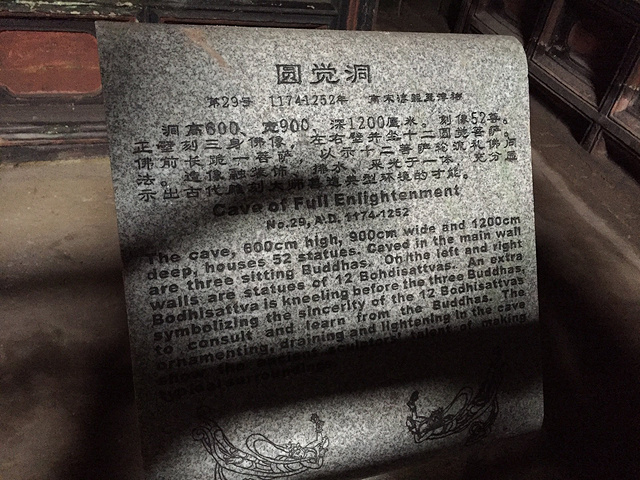 圆觉洞
第29号 1174-1252年 南宋淳熙至淳祐
洞高600、宽900、深1200厘米。刻像52尊。
正壁刻三身佛像，左右壁并坐十二圆觉菩萨。
佛前长跪一菩萨，以示十二菩萨轮流礼佛问
法。造像融装饰、排水、采光于一体，充分显
示出古代雕刻大师善造典型环境的才能。
Cave of Full Enlightenment
No.29, A.D. 1174-1252
The cave, 600cm high, 900cm wide and 1200cm
deep, houses 52 statues. Caved in the main wall
are three sitting Buddhas. On the left and right
walls are statues of 12 Bohdisattvas. An extra
Bodhisattva is kneeling before the three Buddhas,
symbolizing the sincerity of the 12 Bodhisattvas
to consult and learn from the Buddhas. The
ornamenting, draining and lightening in the cave
the ancient sculptors' talent of making
typical surroundings.